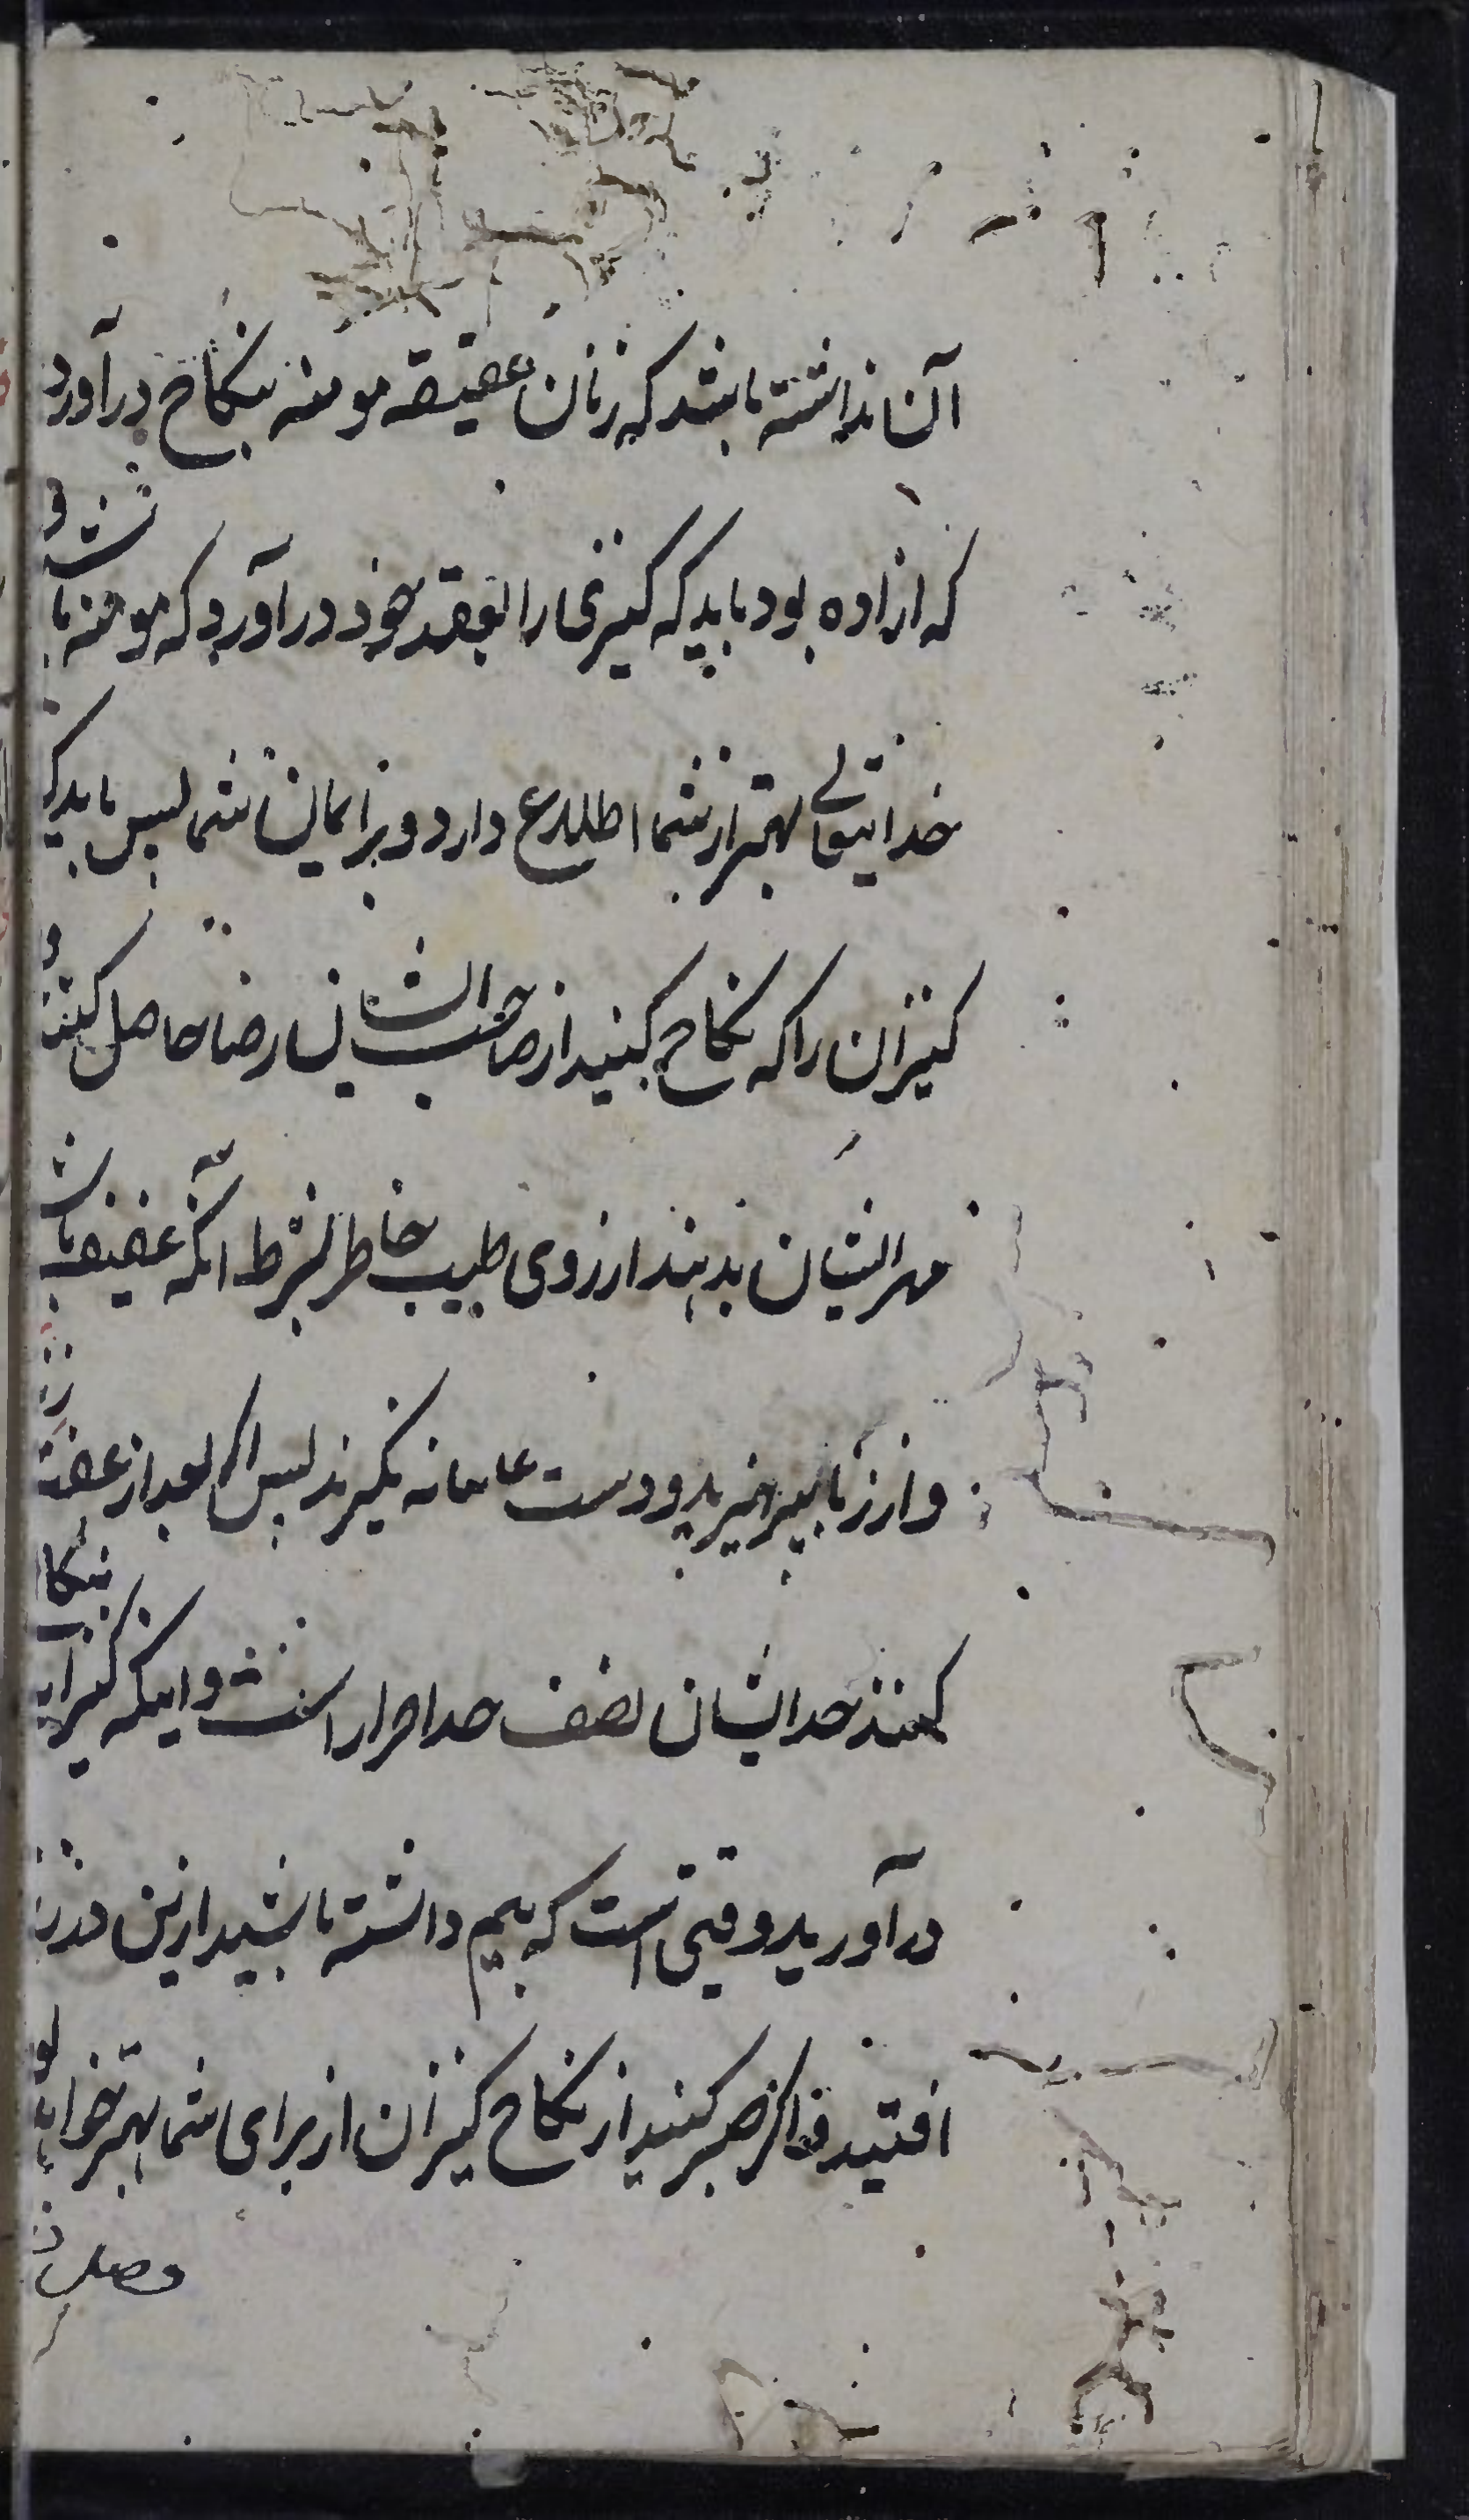 آن نداشته باشد که زنان عفیقه مومنه بنکاح درآورد
که ازاده بود باید که کنیزی را بعقد خود درآورد که مومنه باشد و
خدایتعالی بهتر از شما اطلاع دارد و بر ایمان شما پس باید که
کنیزان را که نکاح کنید از صاحب ایشان رضا حاصل کنند و
مهر ایشان بدهند از روی طیب خاطر بشرط آنکه عفیفه باشد
و از زنا بپرهیزید و دست نگیرند پس اگر بعد از عفت
کنند حد ایشان نصف حد احرار است و اینکه کنیزان بنکا
درآورید وقتی است که بیم داشته باشید ازین در زنا
افتید و اگر صبر کنید از نکاح کنیزان از برای شما بهتر خواهد بو
فصل